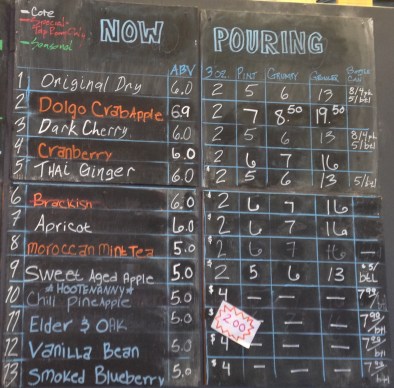 - Core
- Special-
Tap Room Only
- Seasonal
NOW POURING
ABV 3oz PINT GRUMPY GROWLER BOTTLE CAN
1 Original Dry 6.0 2 5 6 13 8/4pk 5/btl
2 Dolgo CrabApple 6.9 2 7 8.50 19.50
3 Dark Cherry 6.0 2 5 6 13 8/4pk 5/btl
4 Cranberry 6.0 2 6 7 16
5 THAI Ginger 6.0 $2 5 6 13 5/btl
6 Brackish 6.0 $2 6 7 16
7 Apricot 6.0 $2 6 7 16
8 Moroccan Mint Tea 5.0 $2 6 7 16 —
9 Sweet Aged Apple 5.0 2 5 6 13 btl
10 *HOOTENANNY* Chili Pineapple 5.0 $4 — — — 7.99 btl
11 Elder & OAK 5.0 2.00 — — — 7.99 btl
12 Vanilla Bean 5.0 $4 — — — 7.99 btl
13 Smoked Blueberry 5.0 $4 — — — 7.99 btl